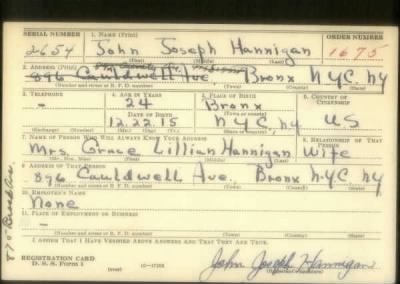 SERIAL NUMBER 1. NAME (Print) ORDER NUMBER
2654 John Joseph Hannigan 1675
(First) (Middle) (Last)
2. ADDRESS (Print)
896 Cauldwell Ave. Bronx N.Y.C. NY
(Number and street or R. F. D. number) (Town) (County) (State)
3. TELEPHONE 4. AGE IN YEARS 5. PLACE OF BIRTH 6. COUNTRY OF CITIZENSHIP
- 24 Bronx
DATE OF BIRTH (Town or county)
12.22.15 N.Y.C. NY US
(Exchange) (Number) (Mo.) (Day) (Yr.) (State or country)
7. NAME OF PERSON WHO WILL ALWAYS KNOW YOUR ADDRESS 8. RELATIONSHIP OF THAT PERSON
Mrs. Grace Lillian Hannigan Wife
(Mr., Mrs., Miss) (First) (Middle) (Last)
9. ADDRESS OF THAT PERSON
896 Cauldwell Ave. Bronx N.Y.C. NY
(Number and street or R. F. D. number) (Town) (County) (State)
10. EMPLOYER'S NAME
None
11. PLACE OF EMPLOYMENT OR BUSINESS
-
(Number and street or R. F. D. number) (Town) (County) (State)
I AFFIRM THAT I HAVE VERIFIED ABOVE ANSWERS AND THAT THEY ARE TRUE.
REGISTRATION CARD
D. S. S. Form 1 (over) John Joseph Hannigan
(Registrant's signature)